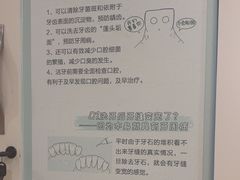 1、可以清除牙菌斑和依附于
牙齿表面的沉淀物，预防龋齿。
2、可以洗去牙齿的“蓬头垢
面”，预防牙周病。
3、还可以有效减少口腔细菌
的繁殖，减少口臭的发生。
4、洁牙前需要全面检查口腔，
有利于及早发掘口腔问题，及早治疗。
洗牙后牙缝变宽了？
平时由于牙石的堆积看不
出来牙缝的真实情况，一
旦除去牙石，就会有牙缝
变宽的感觉。